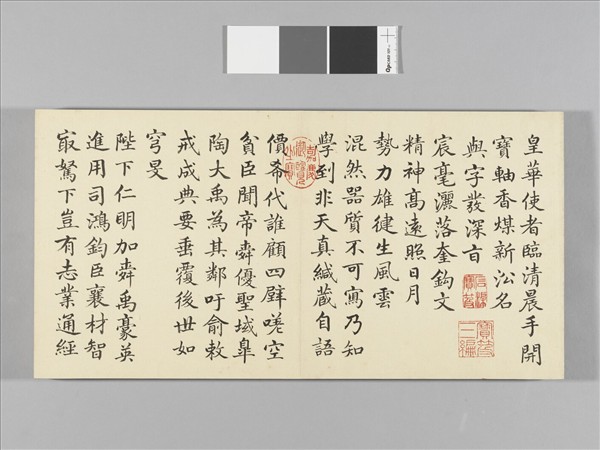 皇華使者臨清晨手開
寶軸香煤新㳂名
與字發深旨
宸毫灑落奎鈎文
精神高遠照日月
勢力雄健生風雲
混然器質不可寫乃知
學到非天真緘藏自語
價希代誰顧四壁嗟空
貧臣聞帝舜優聖域皐
陶大禹為其鄰吁俞敕
戒成典要垂覆後世如
穹旻
陛下仁明加舜禹豪英
進用司鴻鈞臣襄材智
冣駑下豈有志業通經
石渠寶笈
寶笈三編
嘉慶御覽之寶